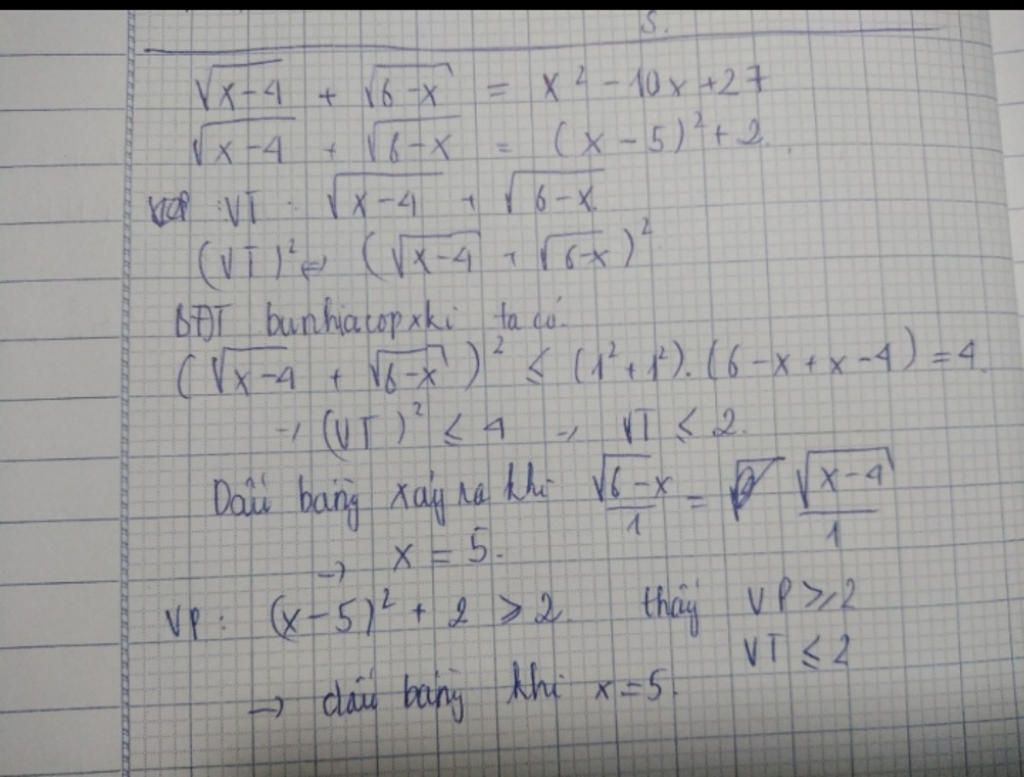 S.
√(x-4) + √(6-x) = x² - 10x + 27
√(x-4) + √(6-x) = (x-5)² + 2.
VT : √(x-4) + √(6-x)
(VT)² ⇔ (√(x-4) + √(6-x))²
BĐT bunhiacopxki ta có.
(√(x-4) + √(6-x))² ≤ (1²+1²).(6-x+x-4) = 4.
→ (VT)² ≤ 4 → VT ≤ 2.
Dấu bằng xảy ra khi √(6-x)/1 = √(x-4)/1
→ x = 5.
VP : (x-5)² + 2 ≥ 2. thấy VP ≥ 2
VT ≤ 2
→ dấu bằng khi x=5.